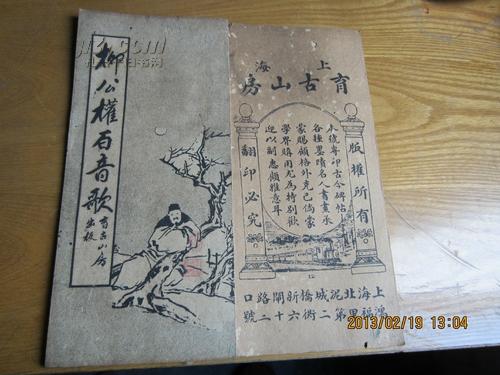 柳公權百音歌
育古山房
出板
上海
育古山房
版權所有
本號專印古今碑帖
各種墨晴名人書畫承
蒙賜顧格外克己倘蒙
學界購用尤為特別歡
迎以副惠顧雅意耳
翻印必究
上海北泥城橋新閘路口
鴻福里第二衖六十二號
2013/02/19 13:04